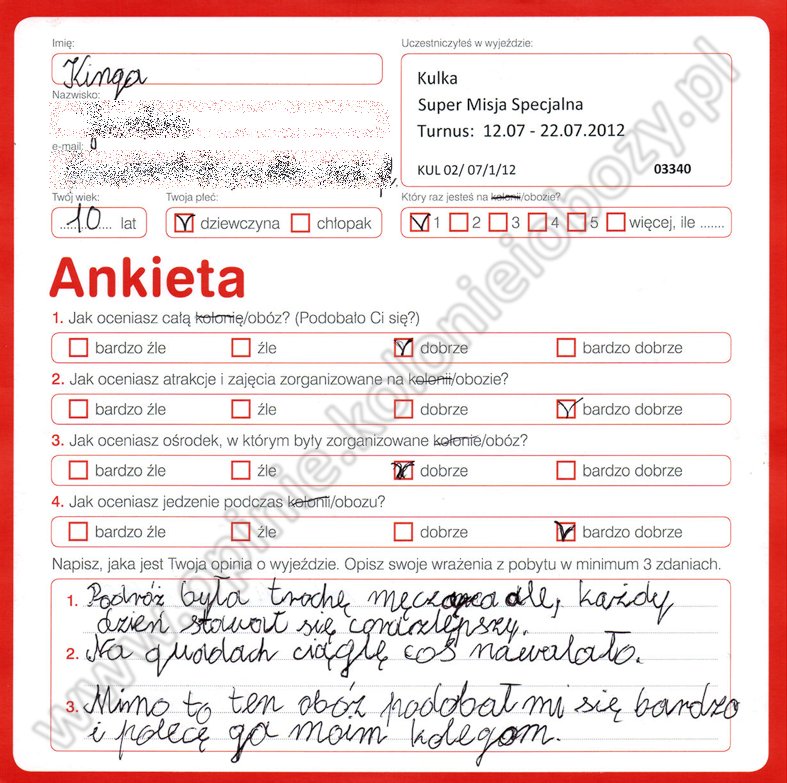 Imię:
Uczestniczyłeś w wyjeździe:
Kinga
Kulka
Super Misja Specjalna
Turnus: 12.07 - 22.07.2012
KUL 02/ 07/1/12 03340
Nazwisko:
e-mail:
Twój wiek: Twoja płeć: Który raz jesteś na kolonii/obozie?
10 lat dziewczyna chłopak 1 2 3 4 5 więcej, ile .......
Ankieta
1. Jak oceniasz całą kolonię/obóz? (Podobało Ci się?)
bardzo źle źle dobrze bardzo dobrze
2. Jak oceniasz atrakcje i zajęcia zorganizowane na kolonii/obozie?
bardzo źle źle dobrze bardzo dobrze
3. Jak oceniasz ośrodek, w którym były zorganizowane kolonie/obóz?
bardzo źle źle dobrze bardzo dobrze
4. Jak oceniasz jedzenie podczas kolonii/obozu?
bardzo źle źle dobrze bardzo dobrze
Napisz, jaka jest Twoja opinia o wyjeździe. Opisz swoje wrażenia z pobytu w minimum 3 zdaniach.
1. Podróż była trochę męcząca ale, każdy
dzień stawał się corazlepszy.
2. Na quadach ciągle coś nawalało.
3. Mimo to ten obóz podobał mi się bardzo
i polecę go moim kolegom.
www.opinie.kolonieiobozy.pl